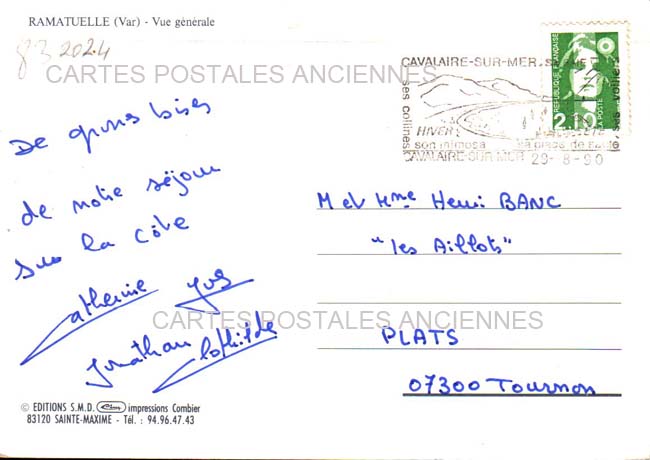 RAMATUELLE (Var) - Vue générale
83 2024
CARTES POSTALES ANCIENNES
De gros bises
de notre séjour
sur la côte
Catherine Yves
Jonathan Clothilde
CAVALAIRE-SUR-MER, SA BAIE
ses collines
HIVER
son mimosa
sa place de
ses voiliers
CAVALAIRE SUR MER 29-8-90
REPUBLIQUE FRANÇAISE
LA POSTE
2,10
M et Mme Henri BANC
"les Aillots"
PLATS
07300 Tournon
CARTES POSTALES ANCIENNES
© EDITIONS S.M.D. Cim impressions Combier
83120 SAINTE-MAXIME - Tél. : 94.96.47.43